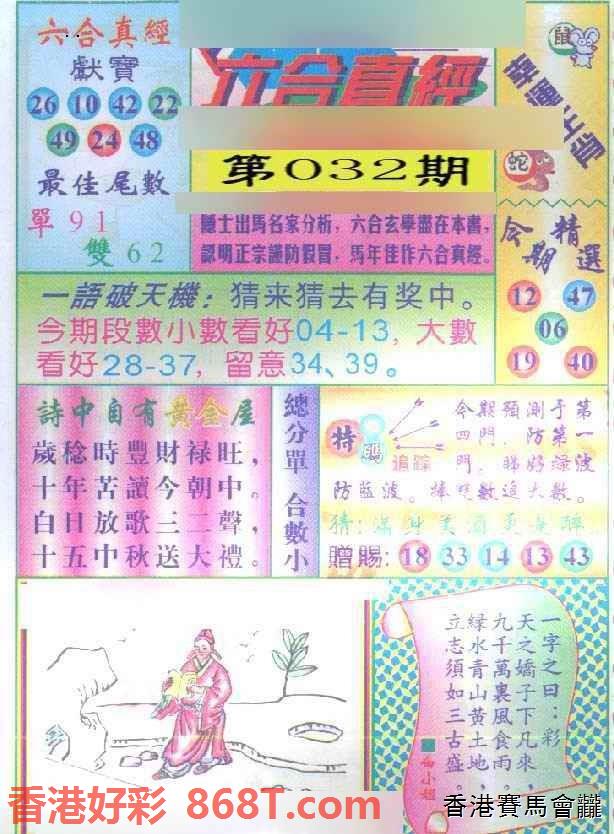 六合真經
獻寶
26 10 42 22
49 24 48
最佳尾數
單 9 1
雙 6 2
六合真經
第032期
隱士出馬名家分析，六合玄學盡在本書，
認明正宗謹防假冒，馬年佳作六合真經。
鼠
幸運生肖
蛇
今期精選
12 47
06
19 40
一語破天機：猜来猜去有奖中。
今期段數小數看好04-13，大數
看好28-37，留意34、39。
詩中自有黃金屋
歲稔時豐財禄旺，
十年苦讀今朝中。
白日放歌三二聲，
十五中秋送大禮。
總分單 合數小
特碼
追踪
今期預測于第
四門，防第一
門，睇好绿波
防藍波。捧 數追大數。
猜：滿身美酒
贈賜：18 33 14 13 43
一字之曰：彩
天之嬌子下凡來，
九千萬裏風食雨，
緑水青山黃土地，
立志須如三古盛。
香港好彩 868T.com
香港賽馬會